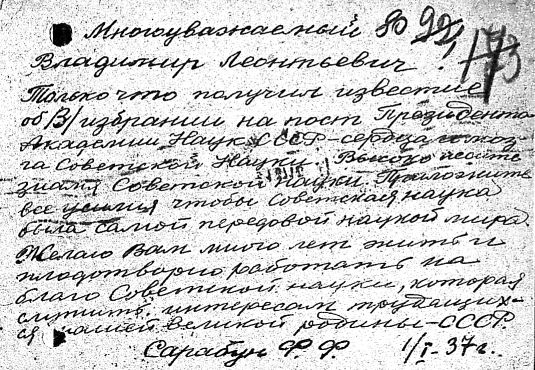 Многоуважаемый
Владимир Леонтьевич!
Только что получил известие
об /В/ избрании на пост Президента
Академии Наук СССР – сердца и моз-
га Советской Науки. Высоко несите
знамя Советской науки. Приложите
все усилия чтобы Советская наука
была самой передовой наукой мира.
Желаю Вам много лет жить и
плодотворно работать на
благо Советской науки, которая
служит интересам трудящих-
ся нашей Великой родины – СССР.
Сарабун Ф. Ф. 1/I-37г.